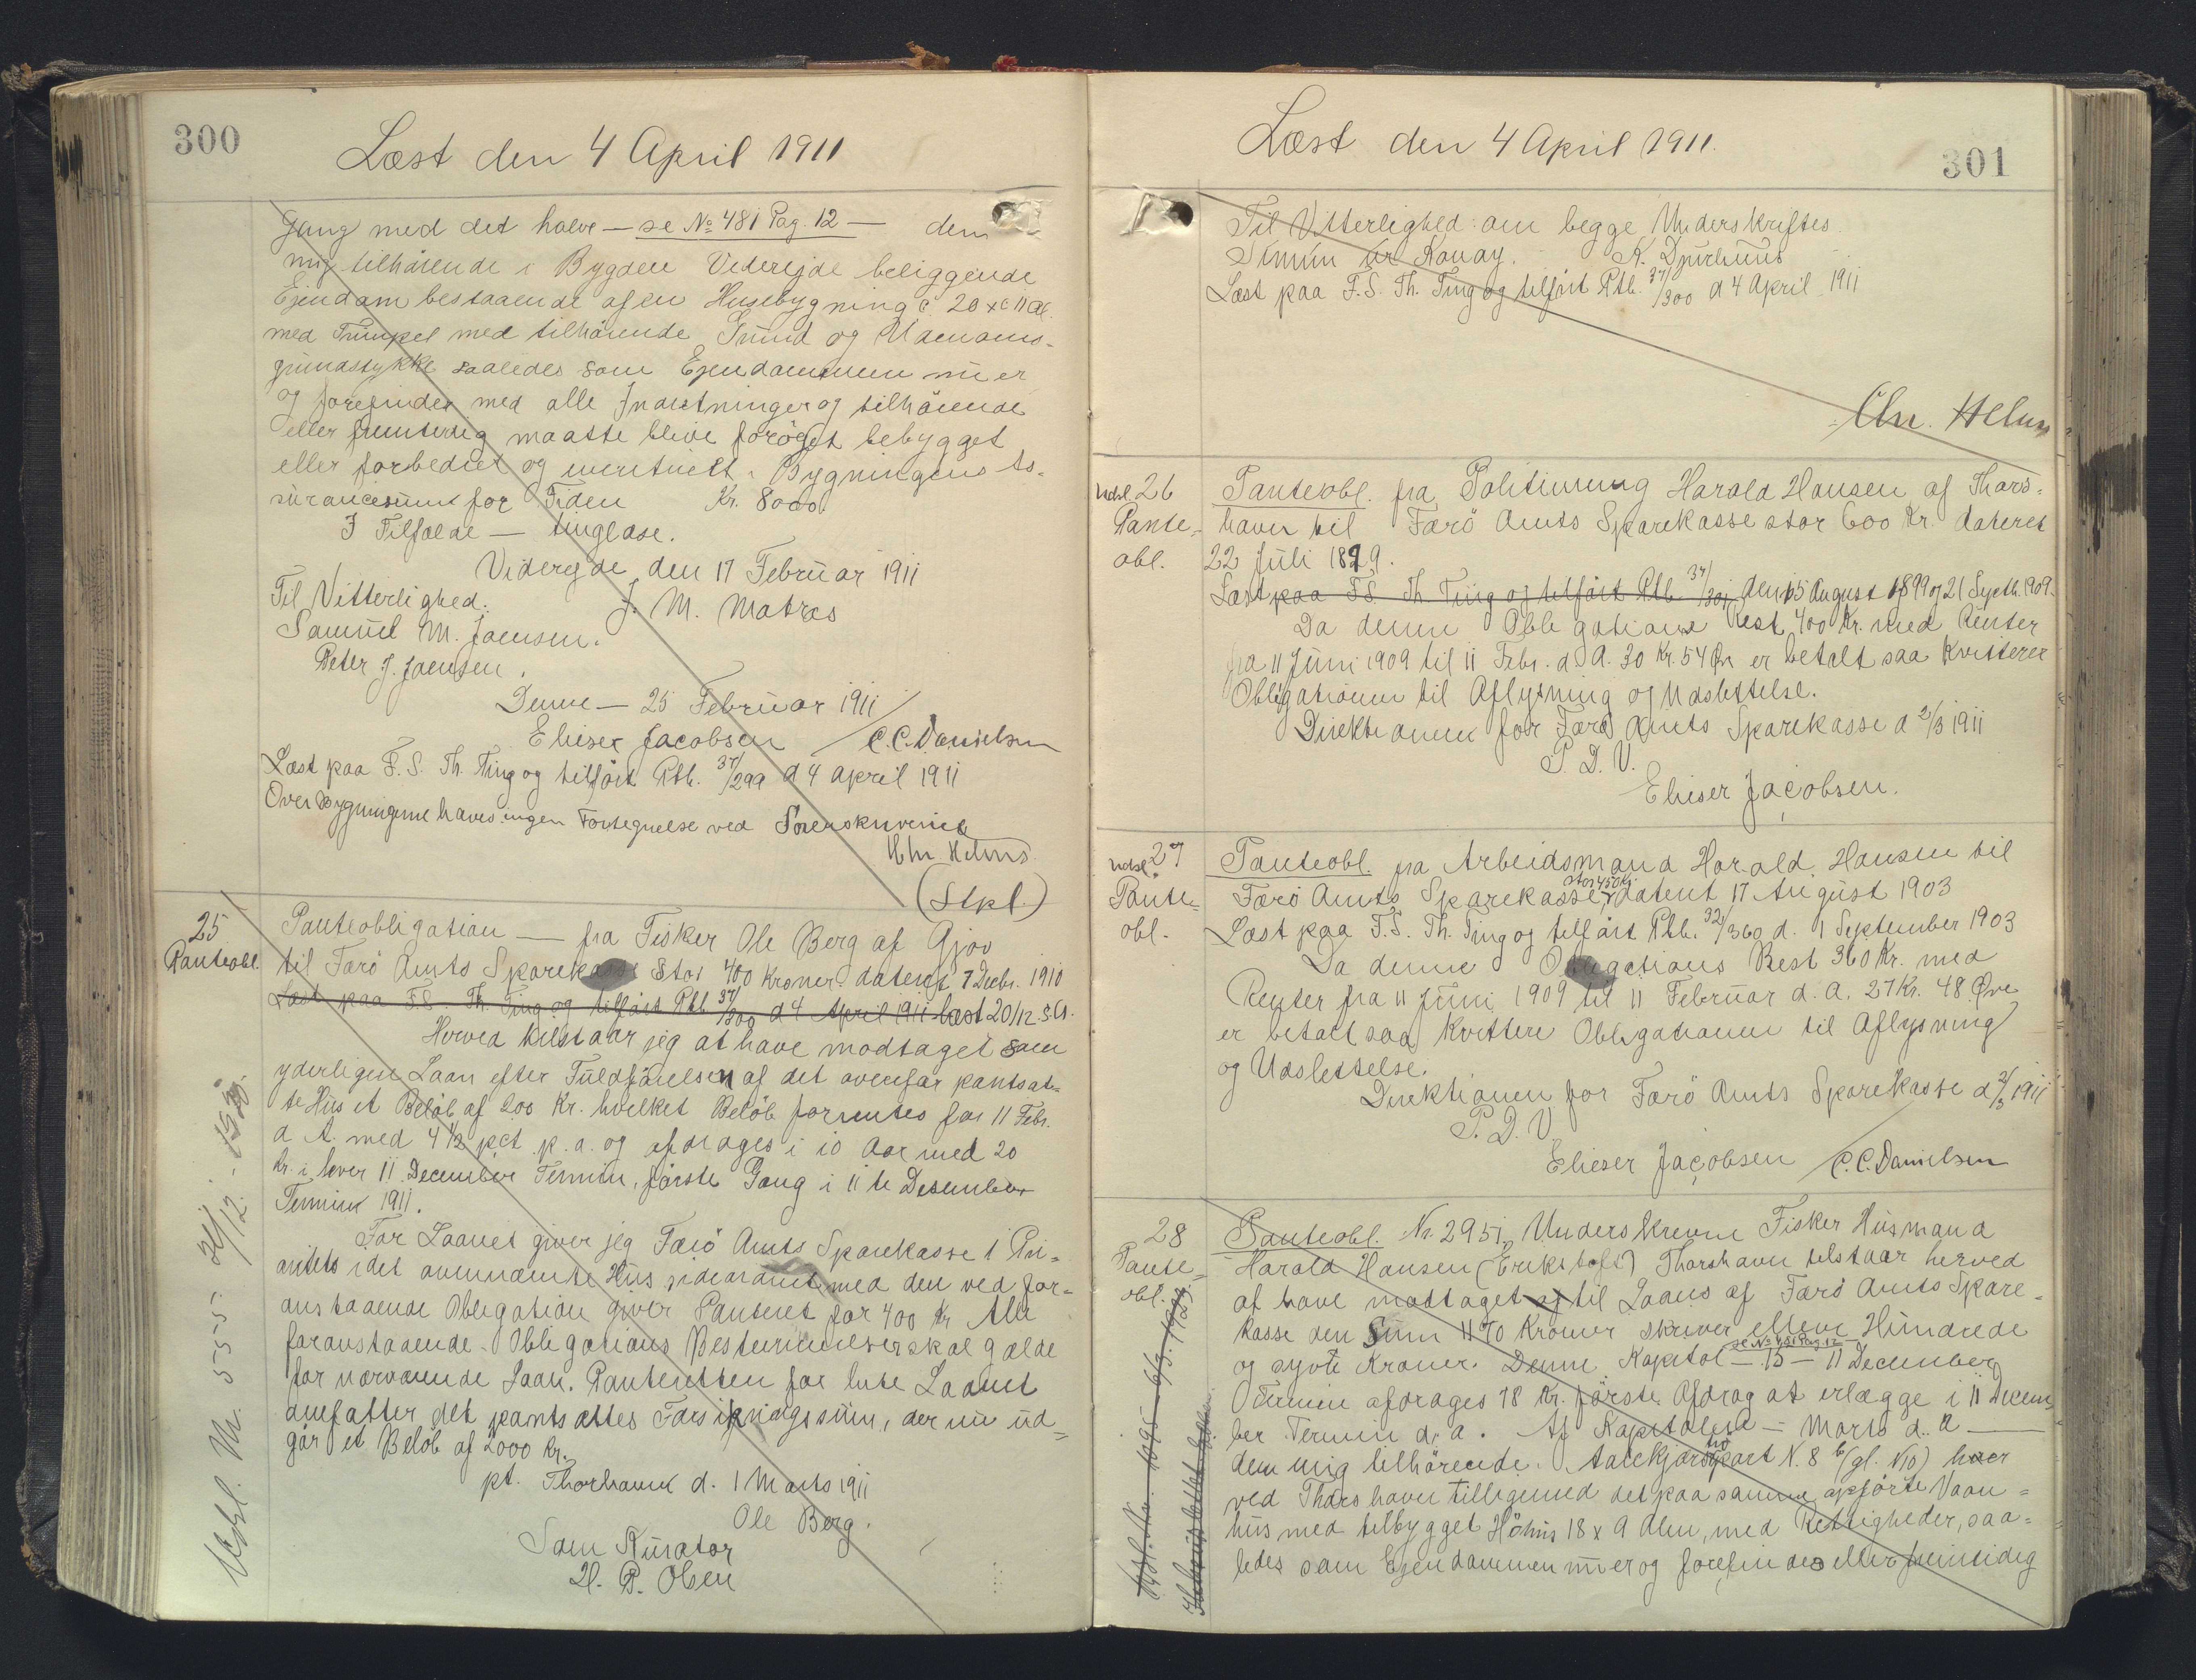 300
Læst den 4 April 1911
Gang med det halve — se No 481 Pag. 12 — den
mig tilhörende i Bygden Viderejde beliggende
Ejendom bestaaende af en Husebygning c. 20 x c 11 Al.
med tilhörende Grund og Udenoms-
grundstykke saaledes som Ejendommen nu er
og forefindes med alle Indretninger og tilhörende
eller fremtidig maatte blive foröget bebygget
eller forbedret og eventuelt Bygningens As-
surancesum for Tiden Kr. 8000.
I Tilfælde — tinglæse.
Viderejde den 17 Februar 1911
Til Vitterlighed. J. M. Matras
Samuel M. Joensen.
Peter J. Joensen.
Denne — 25 Februar 1911
Elieser Jacobsen / C.C. Danielsen
Læst paa F. S. Th. Ting og tilfört Ptb. 37/299 d 4 April 1911
Over Bygningerne haves ingen Fortegnelse ved Sorenskriveriet
Chr. Helms.
(Stpl.)
25
Panteobl.
Panteobligation — fra Fisker Ole Berg af Gjov
til Færö Amts Sparekasse Stor 400 Kroner dateret 7 Decbr. 1910
Læst paa F.S. Th. Ting og tilfört Ptb. 37/300 d 4 April 1911 læst 20/12. s. A.
Herved tilstaar jeg at have modtaget som
yderligere Laan efter Fuldförelsen af det ovenfor pantsat-
te Hus et Belöb af 200 Kr. hvilket Belöb forrentes fra 11 Febr.
d A. med 4 1/2 pct p. a. og afdrages i 10 Aar med 20
Kr. i hver 11 December Termin, förste Gang i 11te Desember
Termin 1911.
For Laanet giver jeg Færö Amts Sparekasse 1 Pri-
oritets i det ovennævnte Hus sideordnet med den ved for-
anstaaende Obligation given Panteret for 400 Kr Alle
foranstaaende Obligations Bestemmelser skal gælde
for nærværende Laan. Panteretten for hele Laanet
omfatter det pantsattes Forsikringssum, der nu ud-
gör et Belöb af 2000 Kr.
pt. Thorshavn d. 1 Marts 1911
Ole Berg.
Som Kurator
H. P. Olsen
Udsl. N. 555 21/12.
301
Læst den 4 April 1911.
Til Vitterlighed om begge Underskriftes
Simun úr Konoy. K. Djurhuus
Læst paa F.S. Th. Ting og tilfört Ptb. 37/300 d 4 April 1911
Chr. Helms
Udsl. 26
Pante-
obl.
Panteobl. fra Politimung Harald Hansen af Thors-
havn til Færö Amts Sparekasse stor 600 Kr. dateret
22 Juli 1899.
Læst paa F.S. Th. Ting og tilfört Ptb. 37/301 den 15 August 1899 og 21 Septb. 1909.
Da denne Obligations Rest 400 Kr. med Renter
fra 11 Juni 1909 til 11 Febr. d. A. 30 Kr. 54 Öre er betalt saa kvitteres
Obligationen til Aflysning og Udslettelse.
Direktionen for Færö Amts Sparekasse d 2/3 1911
P. D. V.
Elieser Jacobsen.
Udsl. 27
Pante-
obl.
Panteobl. fra Arbeidsmand Harald Hansen til
stor 450 Kr.
Færö Amts Sparekasse dateret 17 August 1903
Læst paa F.S. Th. Ting og tilfört Ptb. 32/360 d. 1 September 1903
Da denne Obligations Rest 360 Kr. med
Renter fra 11 Juni 1909 til 11 Februar d. A. 27 Kr. 48 Öre
er betalt saa kvittere Obligationen til Aflysning
og Udslettelse.
Direktionen for Færö Amts Sparekasse d 2/3 1911
P. D. V.
Elieser Jacobsen / C.C. Danielsen
28
Pante-
obl.
Panteobl. Nr. 2951, Underskrevne Fisker Husmand
Harald Hansen (Erikstoft) Thorshavn tilstaar herved
at have modtaget af til Laans af Færö Amts Spare-
kasse den Sum 1170 Kroner skriver elleve Hundrede
og syvti Kroner. Denne Kapital — se No 481 Pag. 12 — 15 — 11 December
Termin afdrages 78 Kr. förste Afdrag at erlægge i 11 Decem
ber Termin d. a. Af Kapitalen — Marts d. A —
den mig tilhörende part N. 8 b (gl. N 10) her
ved Thorshavn tilligemed det paa samme opförte Vaan-
hus med tilbygget Höhus 18 x 9 Alen, med Rettigheder, saa-
ledes som Ejendommen nu er og forefindes eller fremtidig